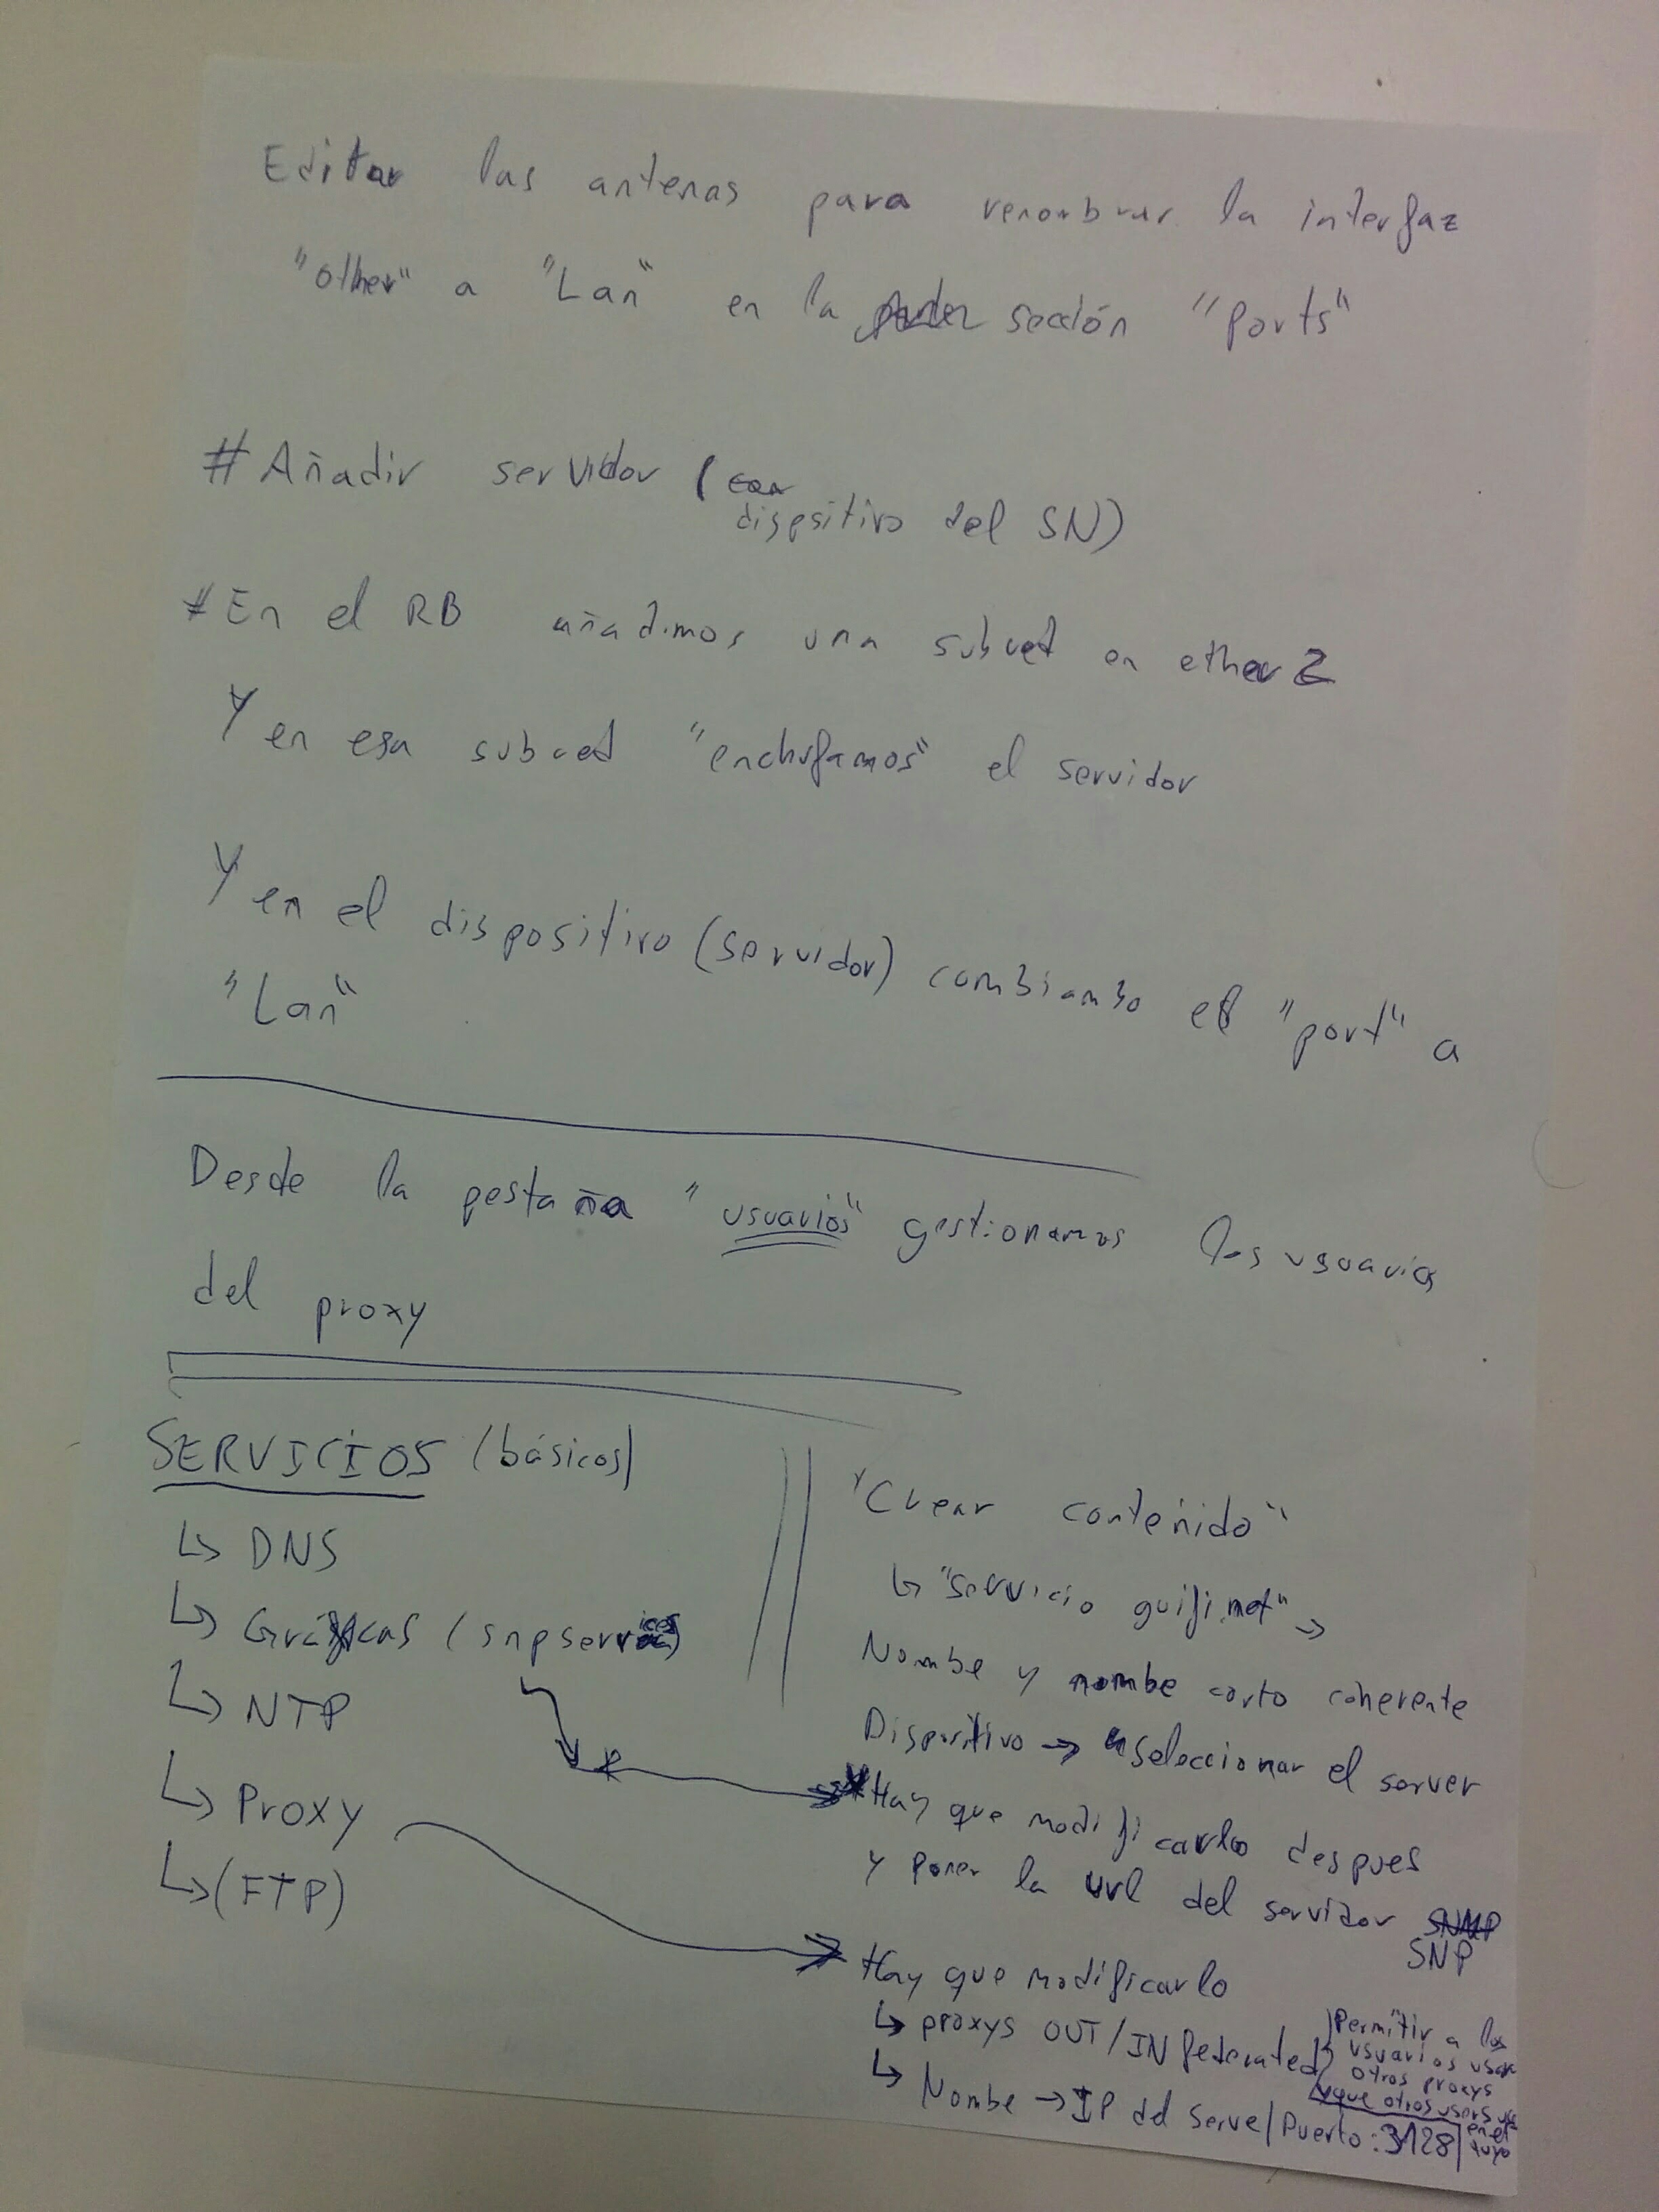 Editar las antenas para renombrar la interfaz
"other" a "Lan" en la sección "ports"
# Añadir servidor (
dispositivo del SN)
# En el RB añadimos una subred en ether 2
Y en esa subred "enchufamos" el servidor
Y en el dispositivo (servidor) cambiamso el "port" a
"Lan"
Desde la pestaña "usuarios" gestionamos los usuarios
del proxy
SERVICIOS (básicos)
↳ DNS
↳ Gráficas (snpservices)
↳ NTP
↳ Proxy
↳ (FTP)
"Crear contenido"
↳ "servicio guifi.net" →
Nombe y nombe corto coherente
Dispositivo → seleccionar el server
* Hay que modificarlo despues
y poner la url del servidor SNMP
SNP
Hay que modificarlo
↳ proxys OUT/IN federated
↳ Nombe → IP del serve/Puerto: 3128
Permitir a los
usuarios usar
otros proxys
y que otros users
en el
tuyo